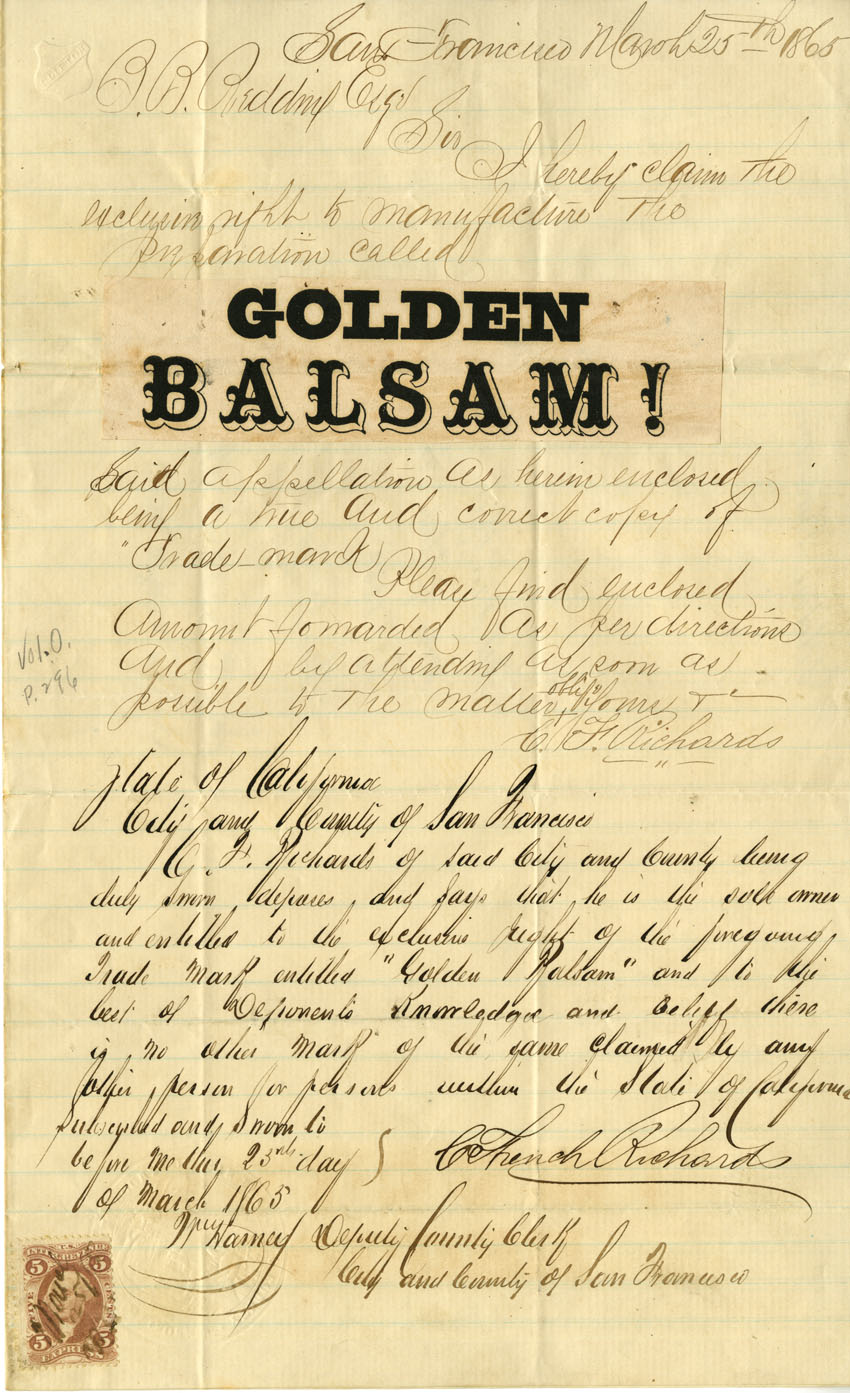 San Francisco March 25th 1865
B. B. Redding Esqr
Sir I hereby claim the
exclusive right to manufacture the
preparation called
GOLDEN
BALSAM!
Said appellation as herein enclosed
being a true and correct copy of
"Trade-mark Please find enclosed
Amount forwarded As per directions
And by attending as soon as
possible to the matter oblige Yours &c
C. F. Richards
Vol. O.
p. 296
State of California
City and County of San Francisco
C. F. Richards of said City and County being
duly sworn deposes and says that he is the sole owner
and entitled to the exclusive right of the foregoing
Trade Mark entitled "Golden Balsam" and to the
best of Deponents Knowledge and belief there
is no other Mark of the same claimed by any
other person or persons within the State of California
Subscribed and Sworn to
before me this 25th day
of March 1865
C French Richards
Harney Deputy County Clerk
City and County of San Francisco
U.S.
INTER. REVENUE
5 5
FIVE CENTS
5 EXPRESS 5